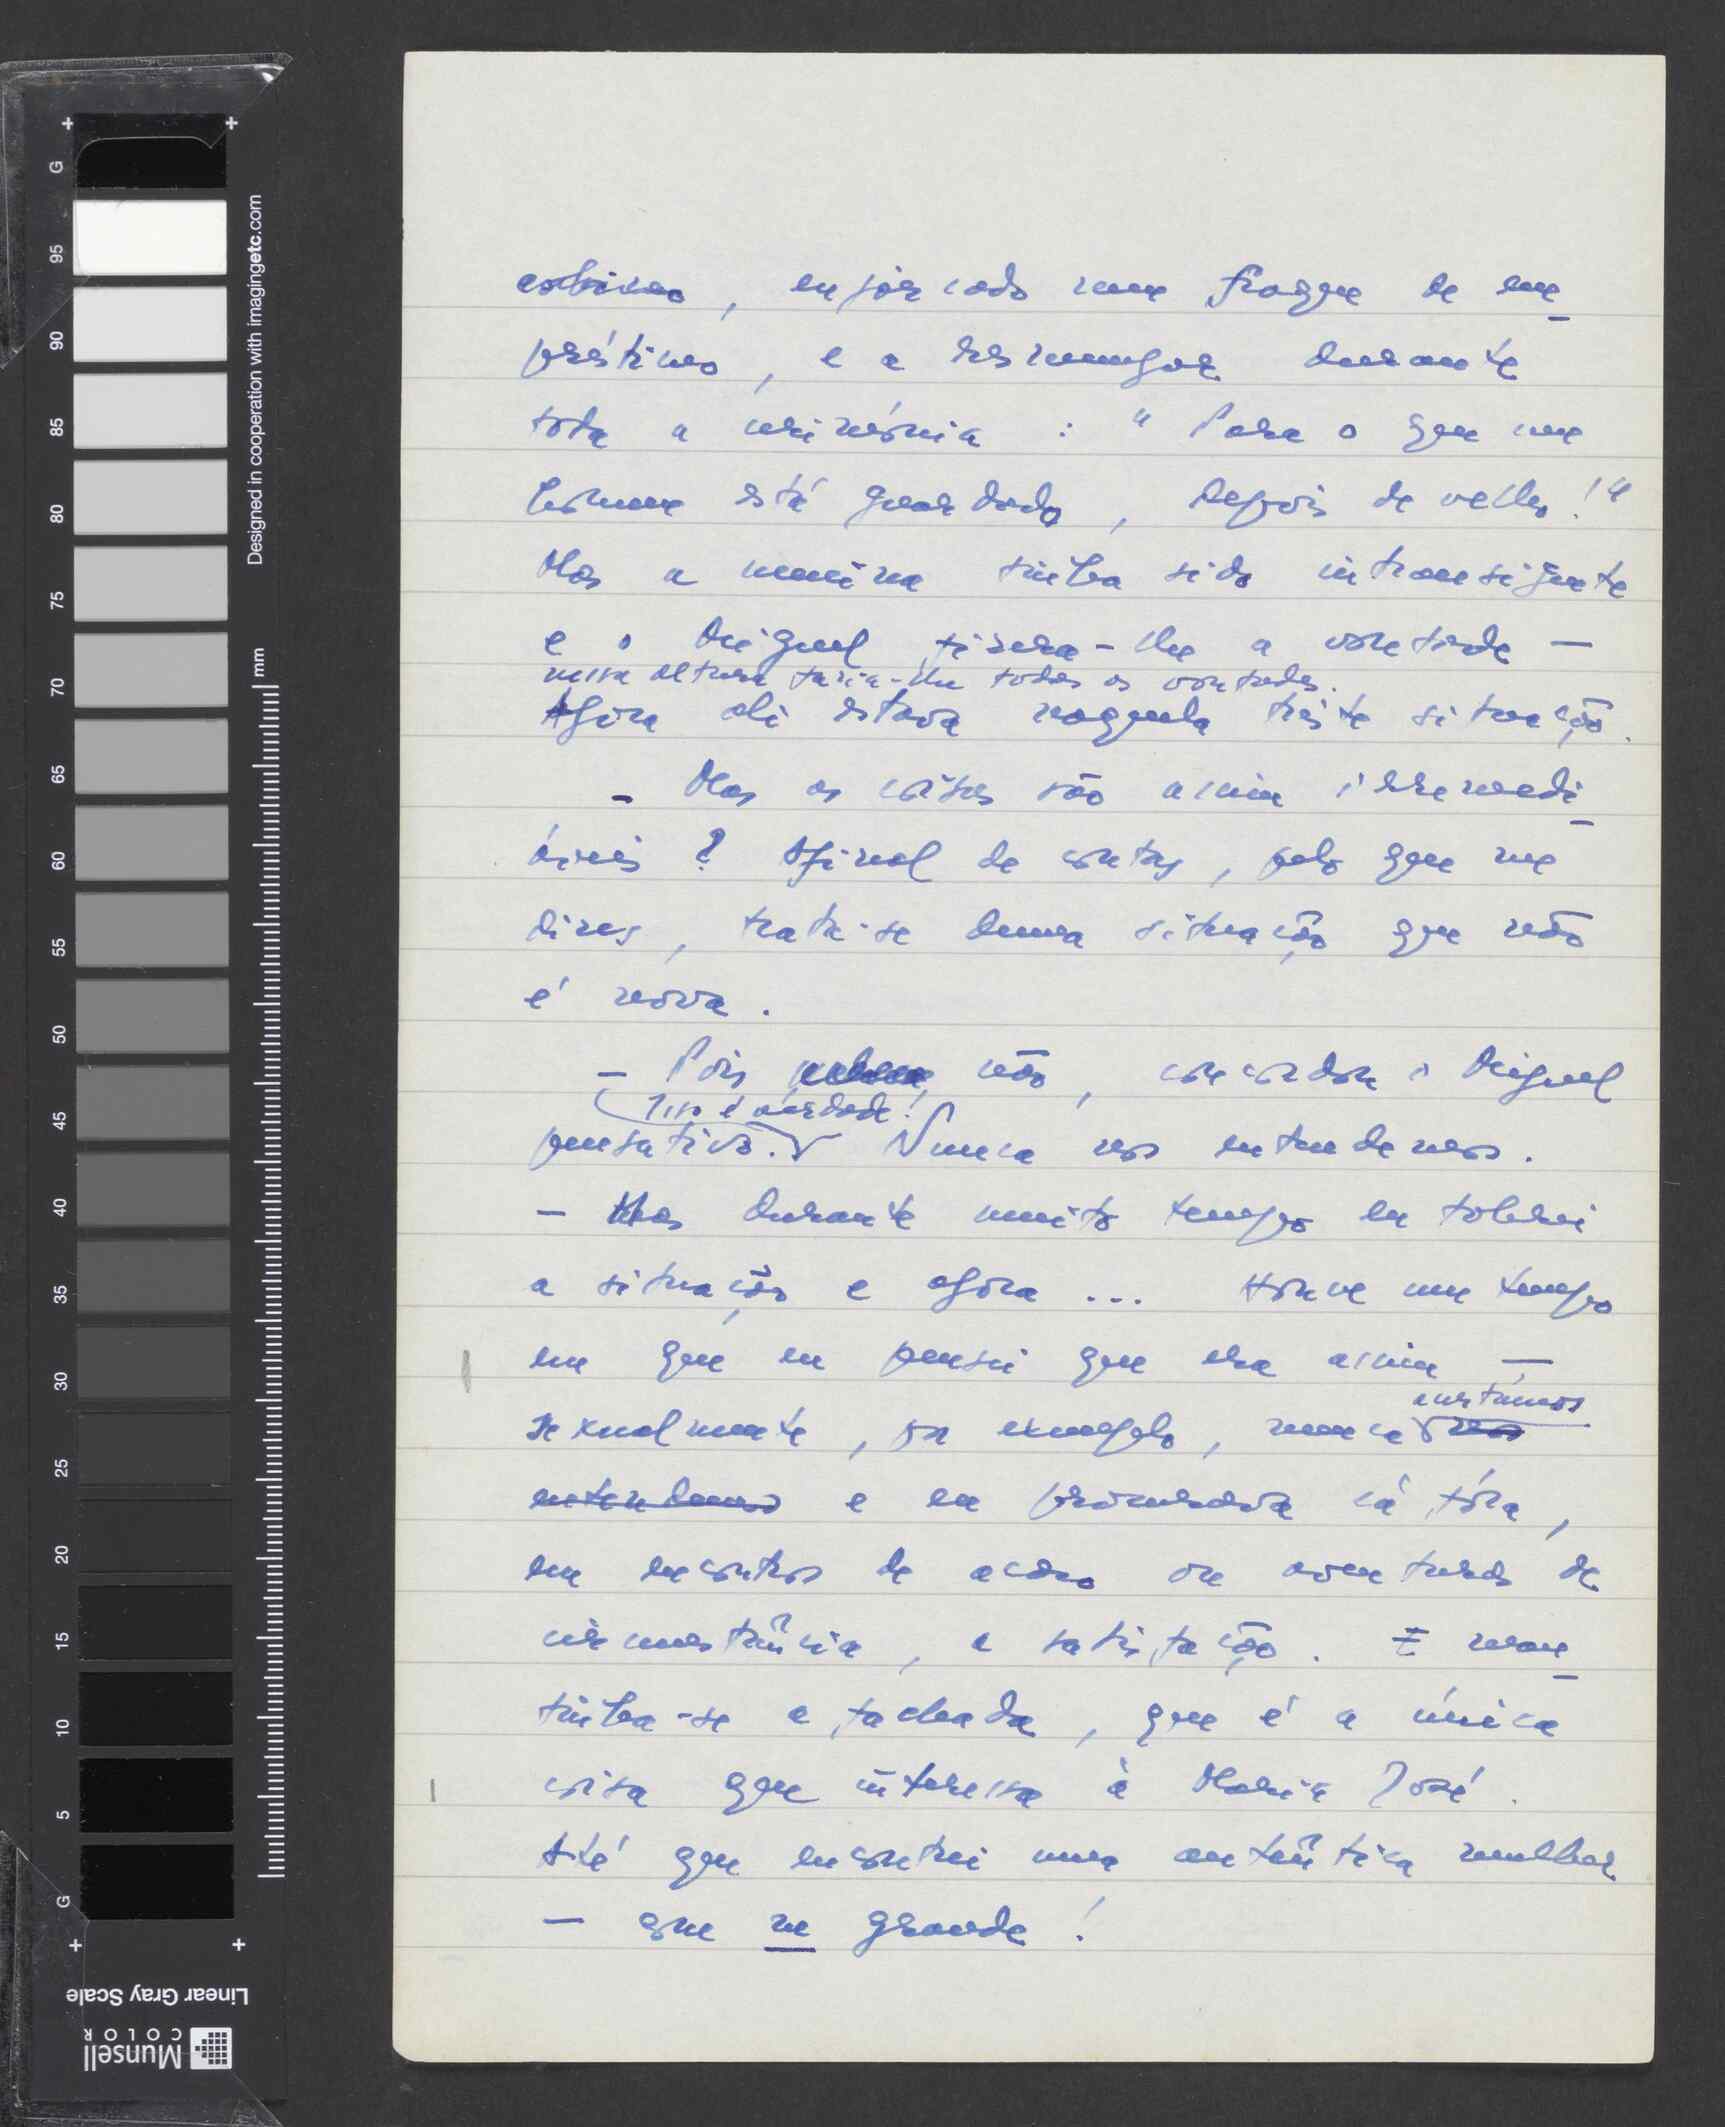 enforcado num fraque de em-
préstimo, e a resmungar durante
toda a cerimónia: "Para o que um
homem está guardado, depois de velho!"
Mas a menina tinha sido intransigente
e o Miguel fizera-lhe a vontade —
nessa altura fazia-lhe todas as vontades.
Agora ali estava naquela triste situação.
- Mas as coisas são assim irremedi-
áveis? Afinal de contas, pelo que me
dizes, trata-se duma situação que não
é nova.
- Pois não, concordou o Miguel
Isso é verdade!
pensativo. Nunca nos entendemos.
- Mas durante muito tempo eu tolerei
a situação e agora ... Houve um tempo
em que eu pensei que era assim —
sexualmente, por exemplo, nunca nos
entendemos e eu procurava lá fóra,
em encontros de acaso ou aventuras de
circunstância, a satisfação. E man-
tinha-se a fachada, que é a única
coisa que interessa à Maria José.
Até que encontrei uma autêntica mulher
— com M grande!
Designed in cooperation with imagingetc.com
mm
G 95 90 85 80 75 70 65 60 55 50 45 40 35 30 25 20 15 10 5 G
Linear Gray Scale
Munsell
COLOR